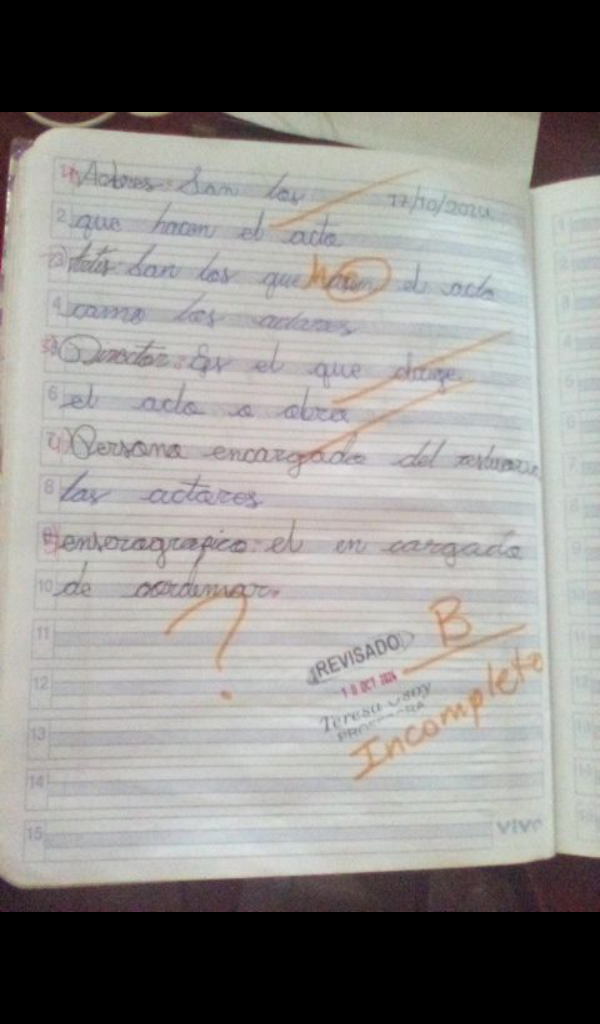 1) Actores: Son los 17/10/2024
2 que hacen el acto
3 2) San los que hacen el acto
4 como los actores
3) Director: Es el que dirige
6 el acto o obra
4) Persona encargado del
8 los actores
5) ensorografico: el en cargado
10 de cordinar.
?
11
REVISADO B
12
18 OCT 2024
Teresa
PROFESORA
Incompleto
13
14
15
vivo